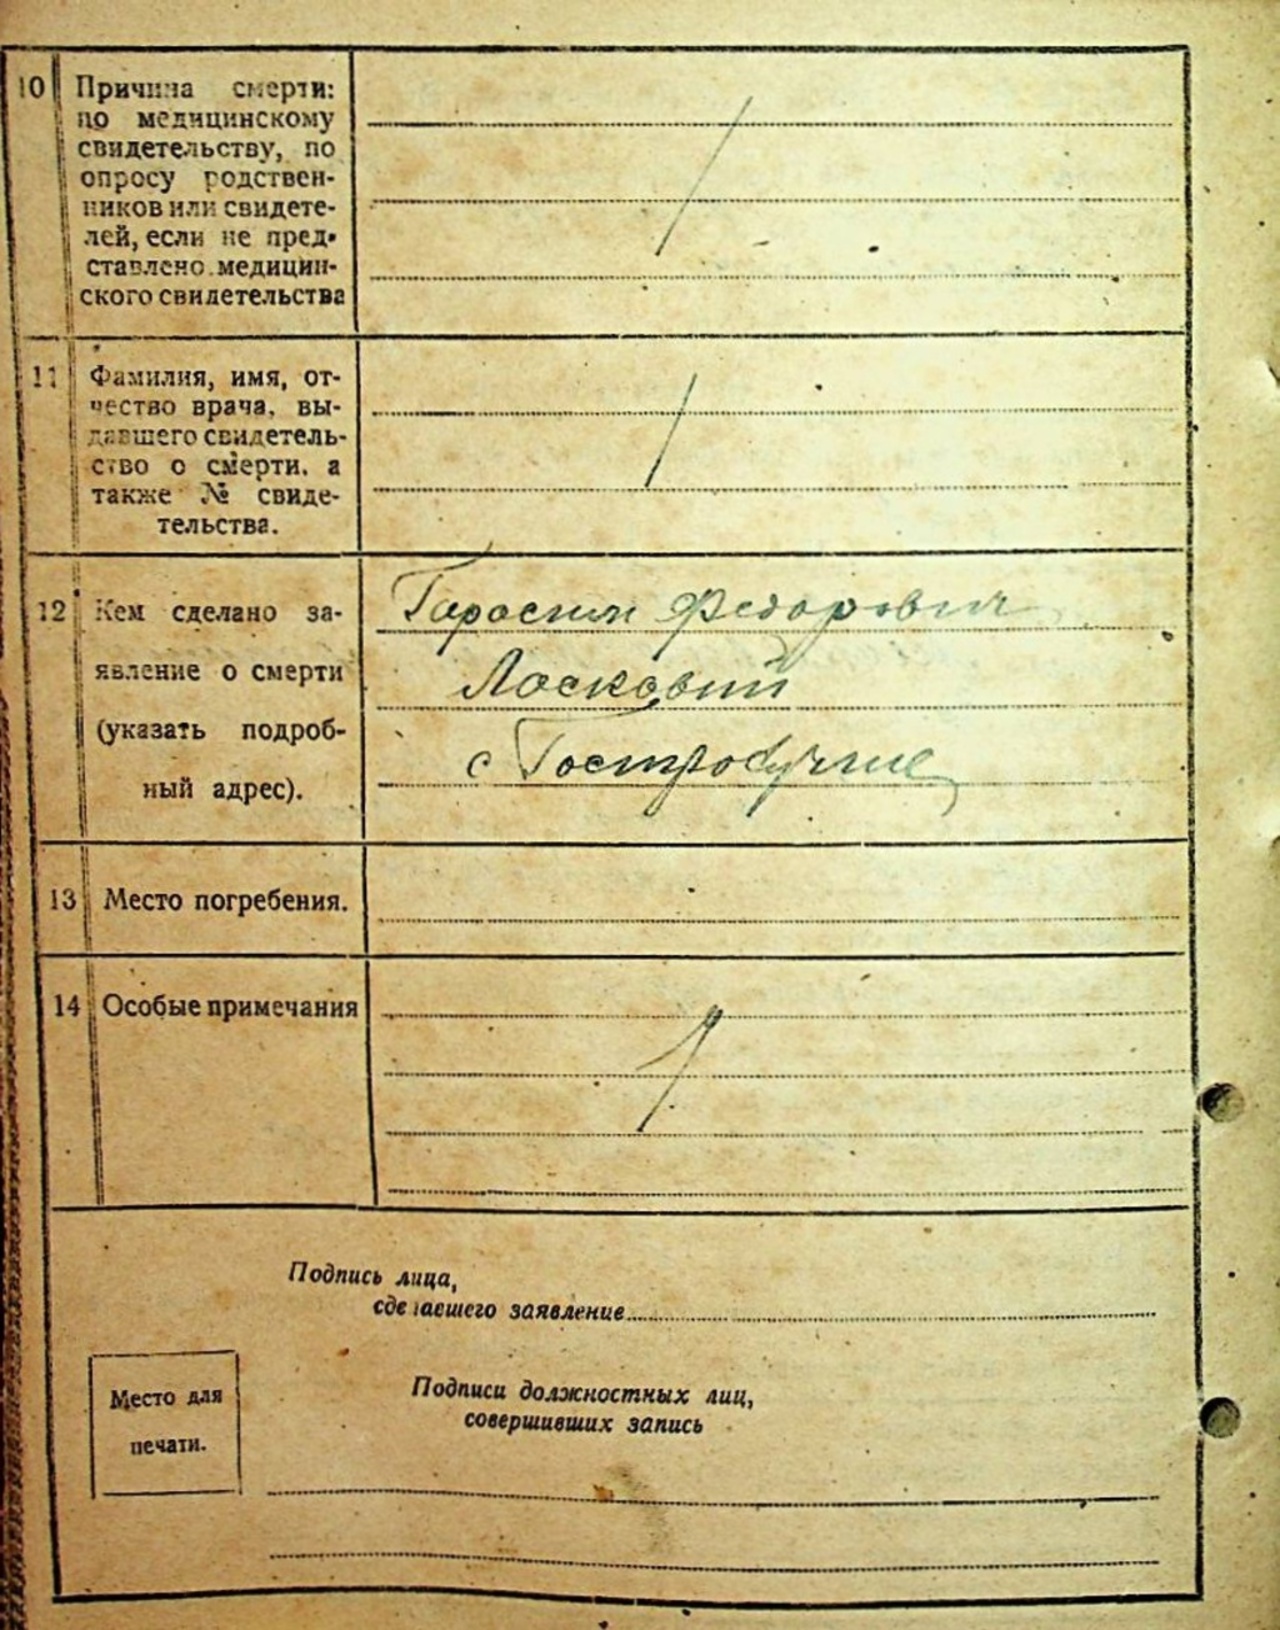 10 Причина смерти:
по медицинскому
свидетельству, по
опросу родствен-
ников или свидете-
лей, если не пред-
ставлено медицин-
ского свидетельства
11 Фамилия, имя, от-
чество врача, вы-
давшего свидетель-
ство о смерти, а
также № свиде-
тельства.
12 Кем сделано за-
явление о смерти
(указать подроб-
ный адрес).
Федорович
Ласковий
с
13 Место погребения.
14 Особые примечания
Подпись лица,
сделавшего заявление
Место для
печати.
Подписи должностных лиц,
совершивших запись